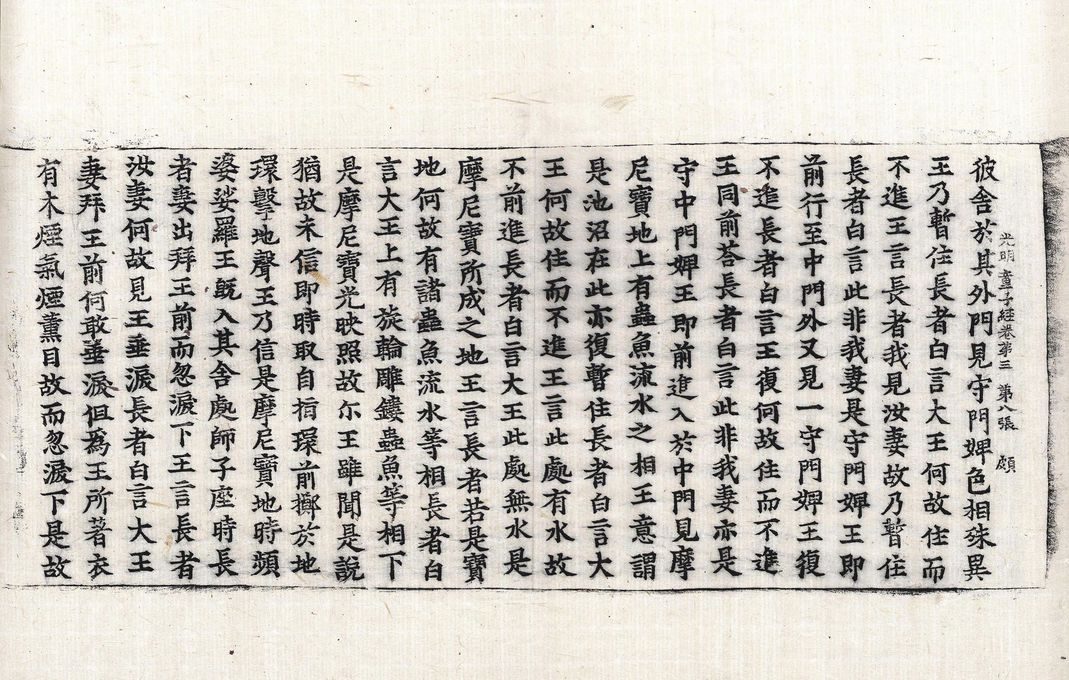 彼舍於其外門見守門婢色相殊異
光明童子經卷第三 第八張 頗
王乃暫住長者白言大王何故住而
不進王言長者我見汝妻故乃暫住
長者白言此非我妻是守門婢王即
前行至中門外又見一守門婢王復
不進長者白言王復何故住而不進
王同前荅長者白言此非我妻亦是
守中門婢王即前進入於中門見摩
尼寶地上有蟲魚流水之相王意謂
是池沼在此亦復暫住長者白言大
王何故住而不進王言此處有水故
不前進長者白言大王此處無水是
摩尼寶所成之地王言長者若是寶
地何故有諸蟲魚流水等相長者白
言大王上有旋輪雕鏤蟲魚等相下
是摩尼寶光映照故尒王雖聞是說
猶故未信即時取自指環前擲於地
環擊地聲王乃信是摩尼寶地時頻
婆娑羅王旣入其舍處師子座時長
者妻出拜王前而忽淚下王言長者
汝妻何故見王垂淚長者白言大王
妻拜王前何敢垂淚但為王所著衣
有木煙氣煙薰目故而忽淚下是故